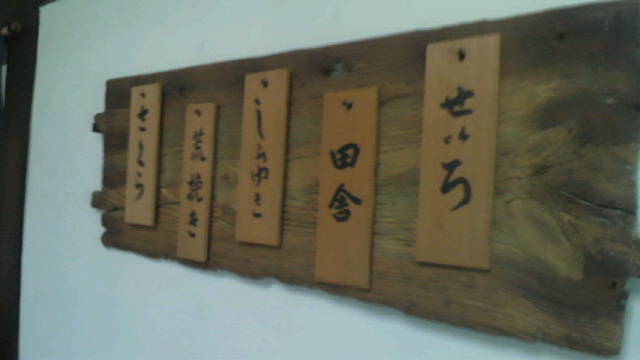 せいろ
田舎
しらゆき
荒挽き
さくら